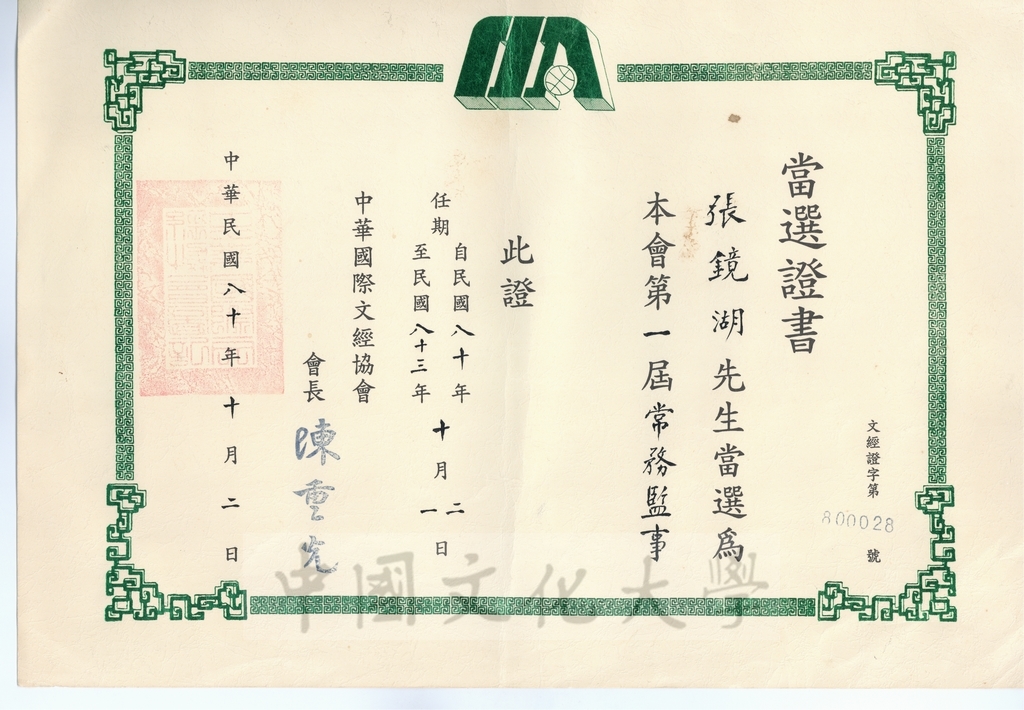 文經證字第 800028 號
當選證書
張鏡湖先生當選為
本會第一屆常務監事
此證
任期 自民國八十年 十月 二 日
至民國八十三年 十月 一 日
中華國際文經協會
會長 陳重光
中華民國八十年十月二日
中國文化大學